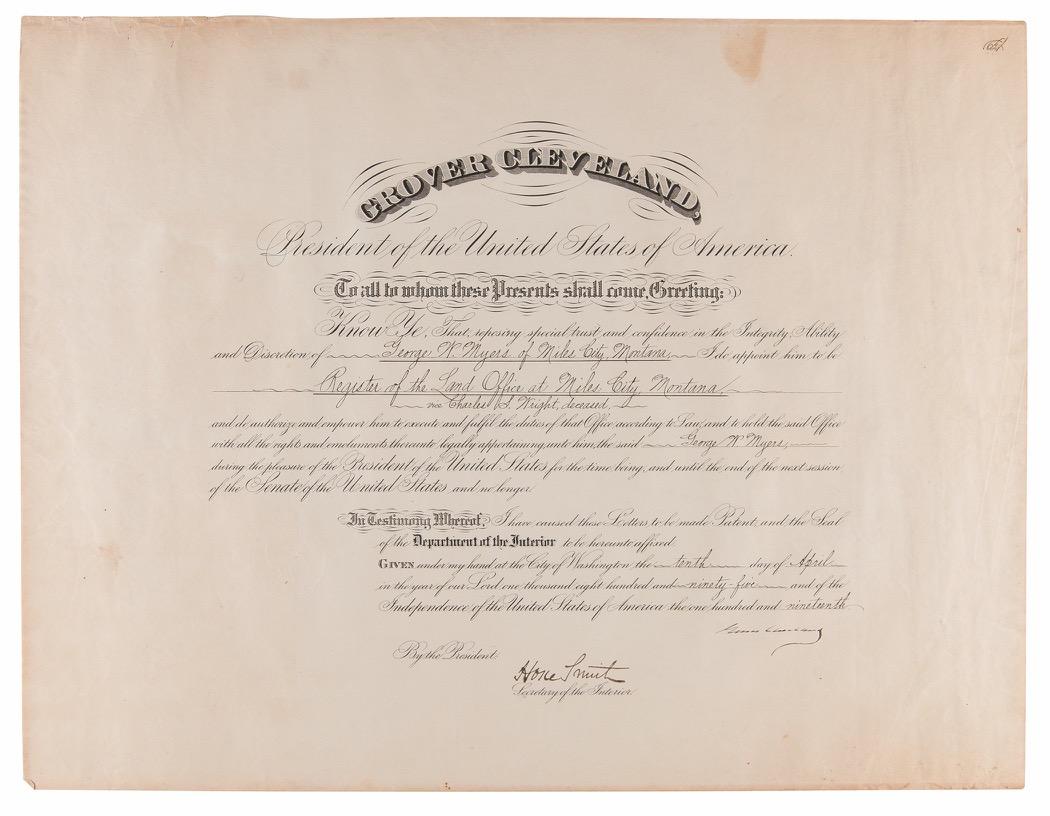 GROVER CLEVELAND,
President of the United States of America.
To all to whom these Presents shall come, Greeting:
Know Ye, That, reposing special trust and confidence in the Integrity, Ability
and Discretion of George W. Myers, of Miles City, Montana, I do appoint him to be
Register of the Land Office at Miles City, Montana,
vice Charles S. Wright, deceased,
and do authorize and empower him to execute and fulfil the duties of that Office according to Law, and to hold the said Office
with all the rights and emoluments thereunto legally appertaining unto him, the said George W. Myers,
during the pleasure of the President of the United States for the time being, and until the end of the next session
of the Senate of the United States and no longer.
In Testimony Whereof, I have caused these Letters to be made Patent, and the Seal
of the Department of the Interior to be hereunto affixed.
GIVEN under my hand at the City of Washington, the tenth day of April
in the year of our Lord one thousand eight hundred and ninety-five and of the
Independence of the United States of America the one hundred and nineteenth
Grover Cleveland
By the President:
Hoke Smith
Secretary of the Interior.